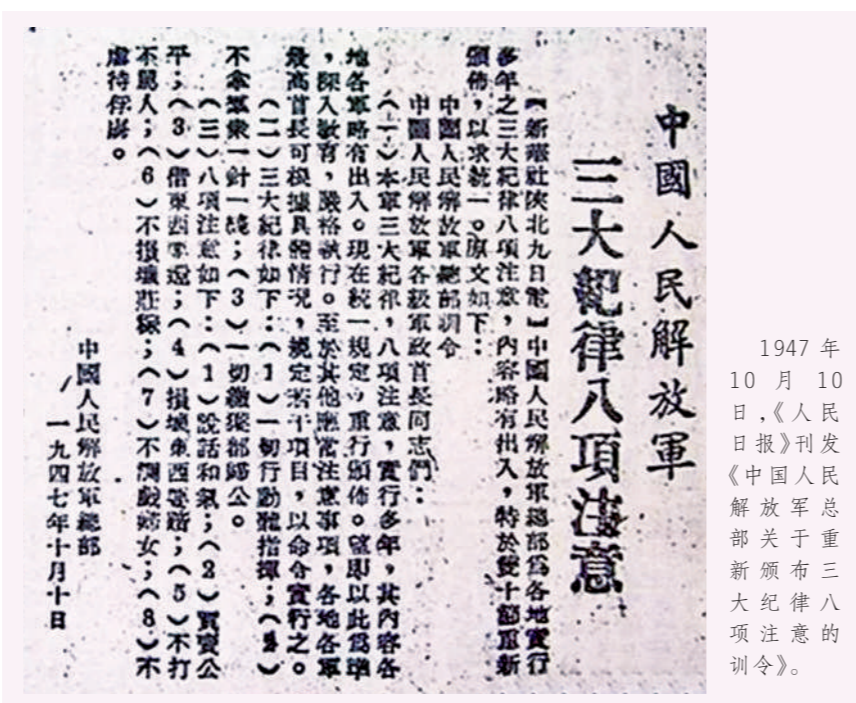 中國人民解放軍
三大紀律八項注意
【新華社陝北九日電】中國人民解放軍總部為各地實行
多年之三大紀律八項注意，內容略有出入，特於雙十節重新
頒佈，以求統一。原文如下：
中國人民解放軍總部訓令
中國人民解放軍各級軍政首長同志們：
（一）本軍三大紀律，八項注意，實行多年，其內容各
地各軍略有出入。現在統一規定，重行頒佈。望即以此為準
，深入教育，嚴格執行。至於其他應當注意事項，各地各軍
最高首長可根據具體情況，規定若干項目，以命令實行之。
（二）三大紀律如下：（1）一切行動聽指揮；（2）
不拿羣衆一針一綫；（3）一切繳獲都歸公。
（三）八項注意如下：（1）說話和氣；（2）買賣公
平；（3）借東西要還；（4）損壞東西要賠；（5）不打
不罵人；（6）不損壞莊稼；（7）不調戲婦女；（8）不
虐待俘虜。
中國人民解放軍總部
一九四七年十月十日
1947 年
10 月 10
日，《人民
日报》刊发
《中国人民
解放军总
部关于重
新颁布三
大纪律八
项注意的
训令》。